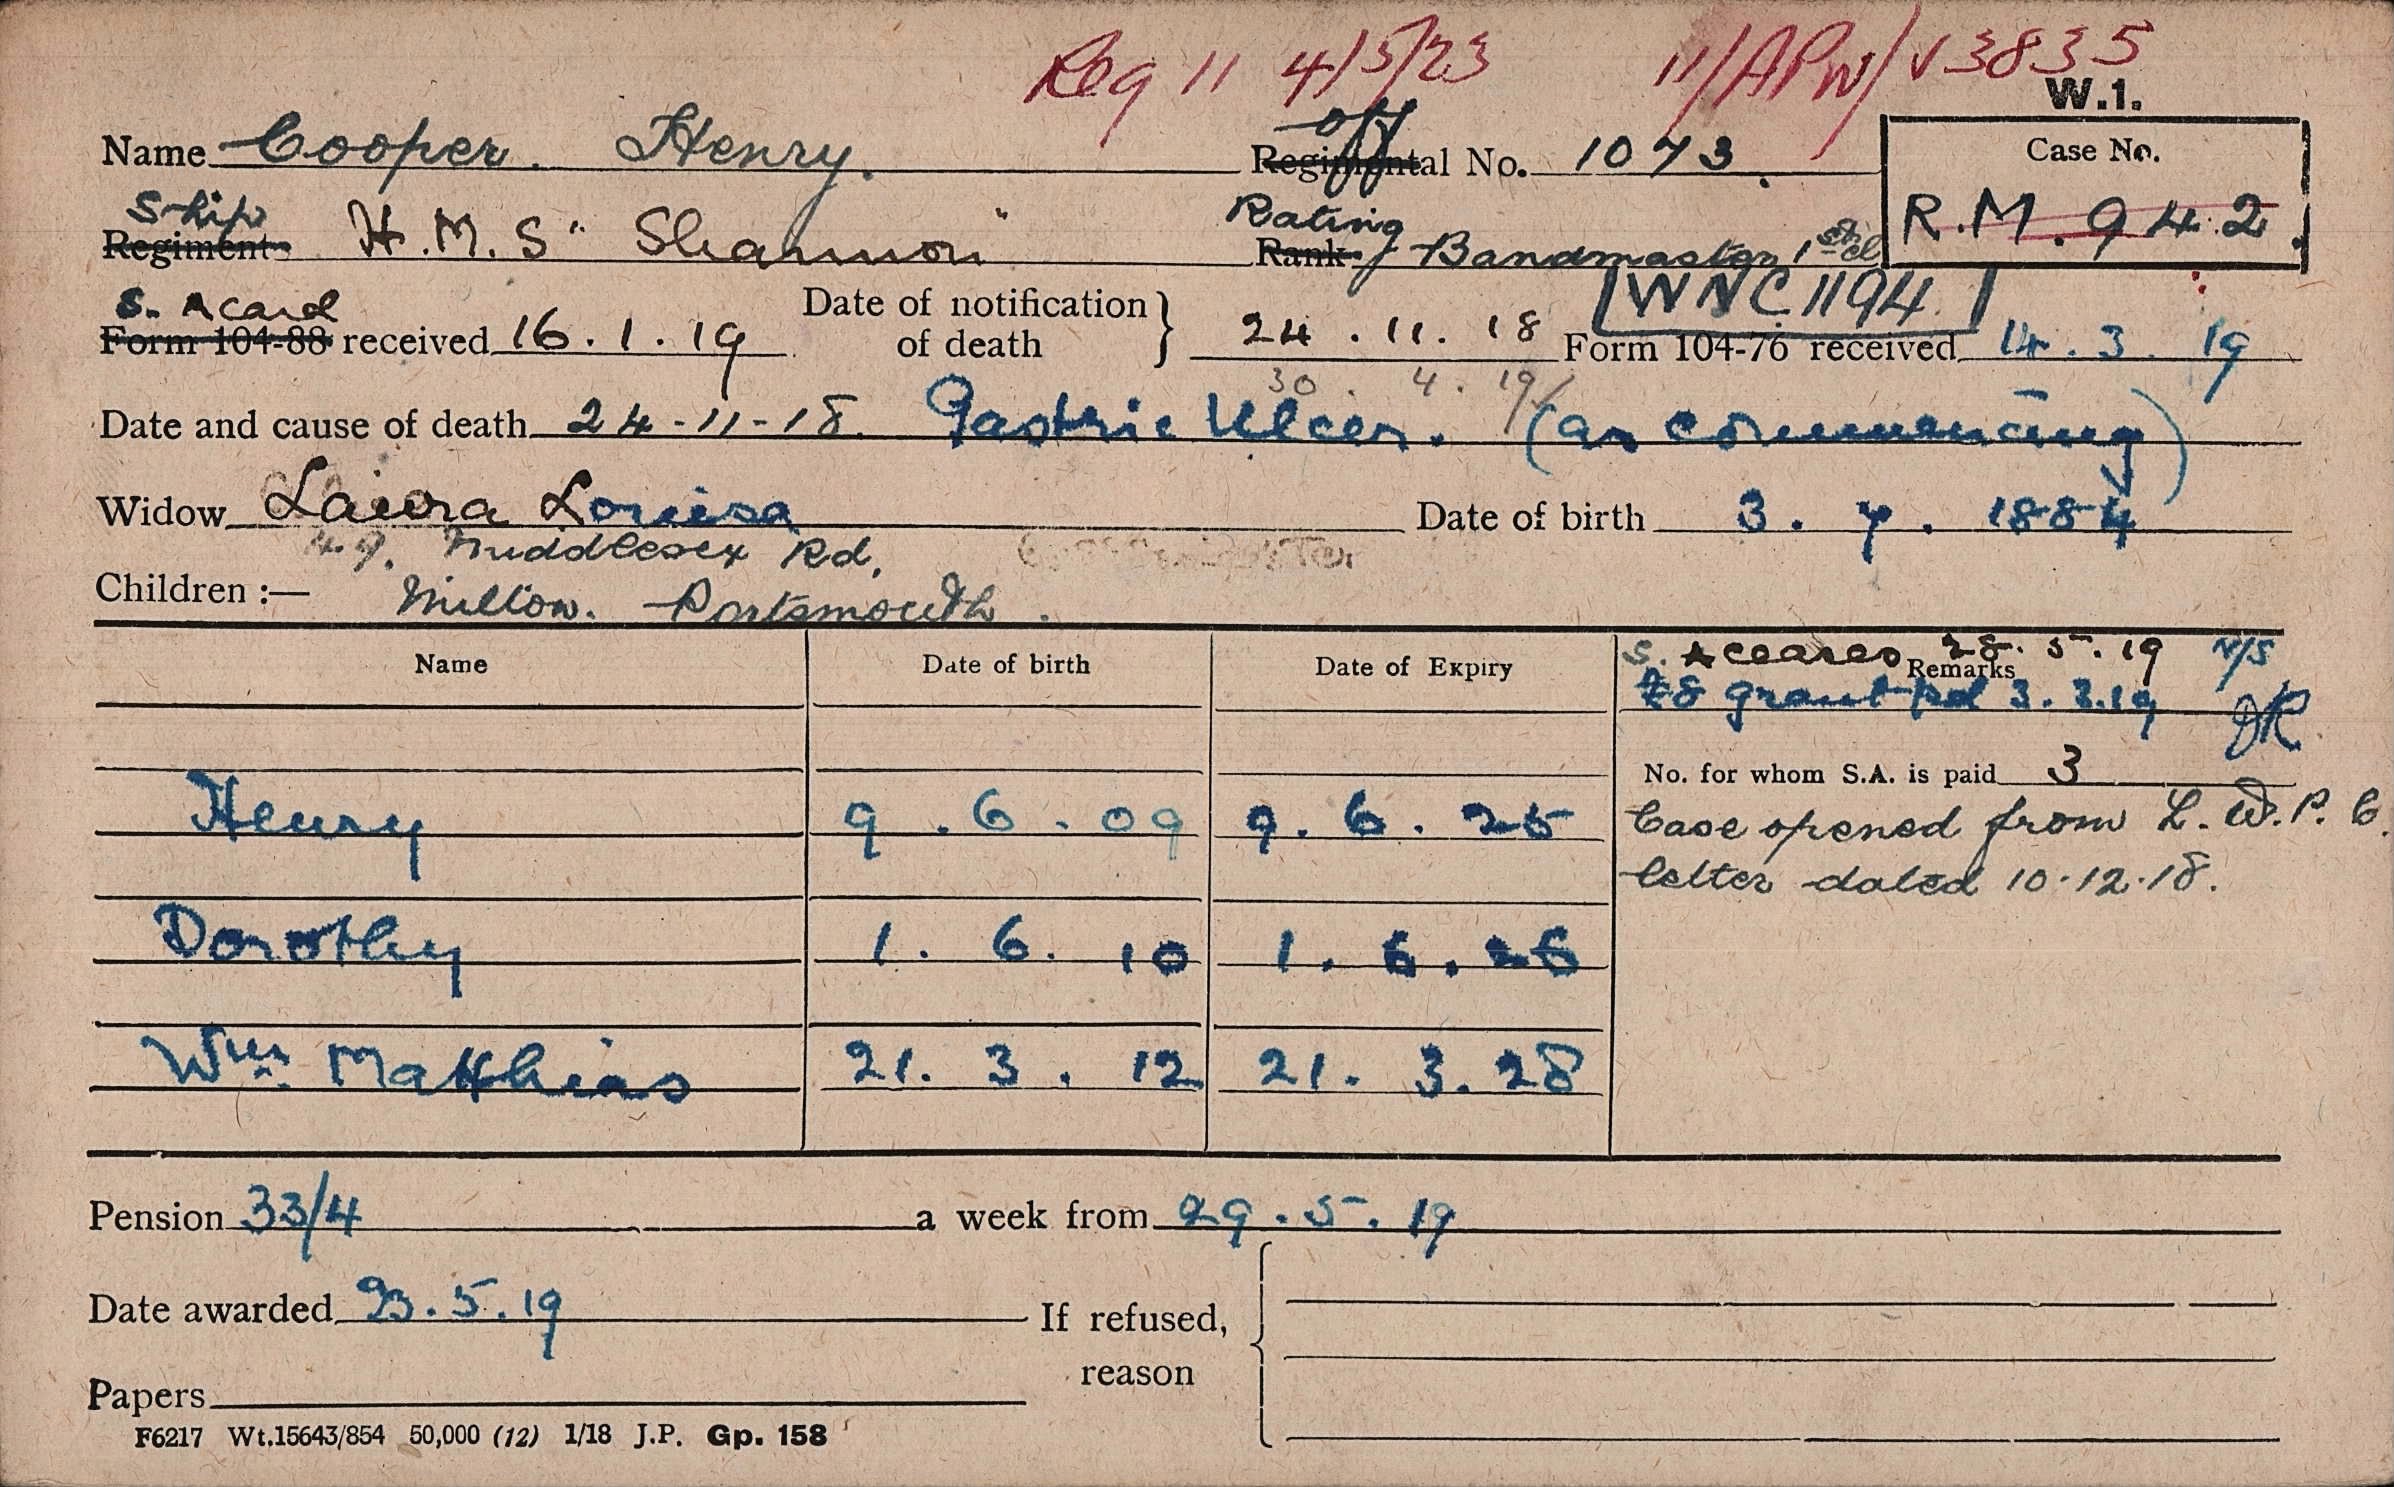 Reg 11 4/5/23 11/APW/V3835
W.1.
Name Cooper. Henry. Off Regimental No. 1073. Case No.
R.M. 942.
Ship Regiment H.M.S "Shannon" Rating Rank Bandmaster 1st cl
WNC 1194
S. A card Form 104-88 received 16.1.19 Date of notification of death } 24.11.18 Form 104-76 received 14.3.19
30.4.19
Date and cause of death 24-11-18. Gastric Ulcer. (as commencing)
Widow Laura Louisa Date of birth 3.7.1884
49. Middlesex Rd,
Children :— Milton. Portsmouth.
Name Date of birth Date of Expiry Remarks
S. A ceases 28.5.19 N/S
£8 grant pd 3.3.19 JR
No. for whom S.A. is paid 3
Henry 9.6.09 9.6.25 Case opened from L.W.P.C.
letter dated 10.12.18.
Dorothy 1.6.10 1.6.26
Wm. Matthias 21.3.12 21.3.28
Pension 33/4 a week from 29.5.19
Date awarded 23.5.19 If refused, reason
Papers
F6217 Wt.15643/854 50,000 (12) 1/18 J.P. Gp. 158